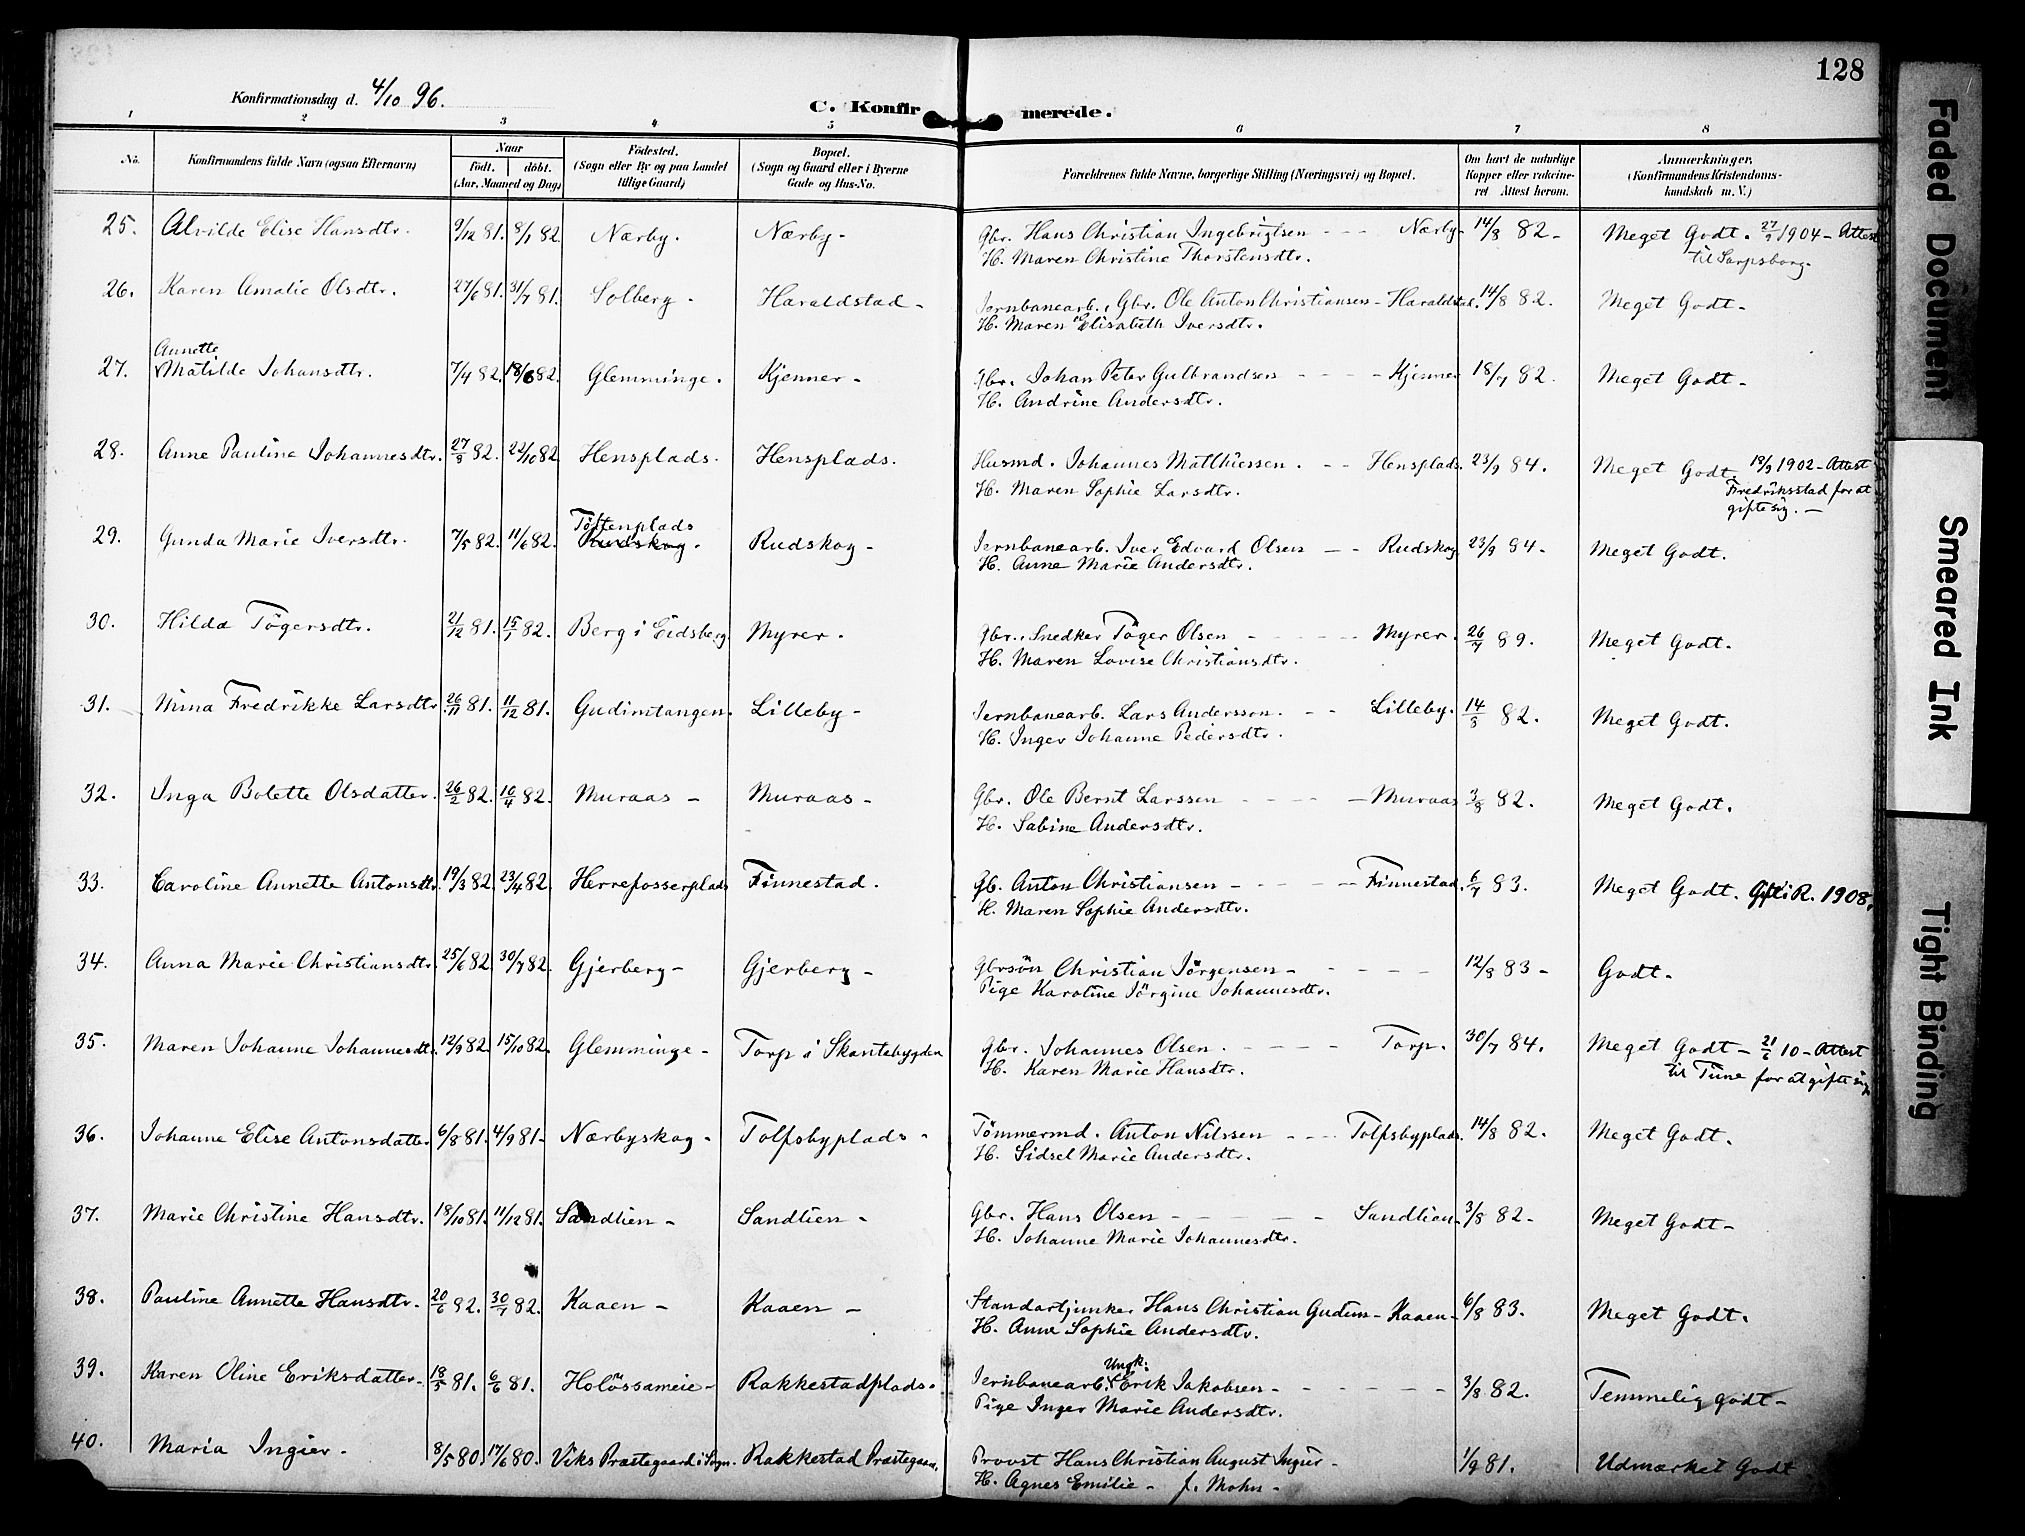 128
Konfirmationsdag d. 4/10 96.
C. Konfirmerede.
1 2 3 4 5 6 7 8
No. Konfirmandens fulde Navn (ogsaa Efternavn) Naar født. døbt. (Aar, Maaned og Dag) Fødested. (Sogn eller By og paa Landet tillige Gaard) Bopæl. (Sogn og Gaard eller i Byerne Gade og Hus-No. Forældrenes fulde Navne, borgerlige Stilling (Næringsvei) og Bopæl. Om havt de naturlige Kopper eller vakcineret Attest herom. Anmærkninger. (Konfirmandens Kristendomskundskab m. V.)
25. Alvilde Elise Hansdtr. 9/12 81. 8/1 82. Nærby. Nærby- Gbr. Hans Christian Ingebrigtsen - - - Nærby- 14/8 82- Meget Godt. 27/9 1904- Attest
H. Maren Christine Thorstensdtr. til Sarpsborg.
26. Karen Amalie Olsdtr. 27/6 81. 31/7 81. Solberg- Haraldstad- Jernbanearb., Gbr. Ole Anton Christiansen- Haraldstad. 14/8 82. Meget Godt-
H. Maren Elisabeth Iversdtr.
Annette
27. Matilde Johansdtr. 7/4 82. 18/6 82. Glemminge. Kjenner- Gbr. Johan Peter Gulbrandsen - - - - Kjenner 18/7 82. Meget Godt-
H. Andrine Andersdtr.
28. Anne Pauline Johannesdtr. 27/8 82. 22/10 82 Hensplads. Hensplads. Husmd. Johannes Matthiessen. - - Hensplads. 23/9 84. Meget Godt- 19/9 1902- Attest
H. Maren Sophie Larsdtr. Fredriksstad for at
gifte sig. -
Töftenplads
29. Gunda Marie Iversdtr. 7/5 82. 11/6 82. Rudskog. Rudskog- Jernbanearb. Iver Edvard Olsen - - Rudskog 23/9 84- Meget Godt.
H. Anne Marie Andersdtr.
30. Hilda Tögersdtr. 21/12 81. 15/1 82. Berg i Eidsberg. Myrer. Gbr., Snedker Töger Olsen - - - - - Myrer. 26/7 89. Meget Godt.
H. Maren Lovise Christiansdtr.
31. Mina Fredrikke Larsdtr 26/11 81. 11/12 81. Gudimtangen. Lilleby- Jernbanearb. Lars Anderssen. - - Lilleby. 14/8 82. Meget Godt.
H. Inger Johanne Pedersdtr.
32. Inga Bolette Olsdatter. 26/2 82. 10/4 82. Muraas- Muraas- Gbr. Ole Bernt Larssen - - - - - Muraas 3/8 82. Meget Godt.
H. Sabine Andersdtr.
33. Caroline Annette Antonsdtr. 19/3 82. 23/4 82. Herrefosserplads Finnestad. Gb. Anton Christiansen - - - - - Finnestad. 6/7 83. Meget Godt. Gift i R. 1908.
H. Maren Sophie Andersdtr.
34. Anna Marie Christiansdtr. 25/6 82. 30/7 82. Gjerberg- Gjerberg- Gbrsön Christian Jörgensen- - - - - 12/8 83- Godt-
Pige Karoline Jörgine Johannesdtr.
35. Maren Johanne Johannesdtr. 12/9 82. 15/10 82. Glemminge- Torp i Skantebygden Gbr. Johannes Olsen. - - - - Torp. 30/7 84. Meget Godt- 21/6 10- Attest
H. Karen Marie Hansdtr. til Tune for at gifte sig
36. Johanne Elise Antonsdatter. 6/8 81. 4/9 81- Nærbyskog- Tolfsbyplads- Tömmermd. Anton Nilssen - - - Tolfsbyplads. 14/8 82. Meget Godt.
H. Sidsel Marie Andersdtr.
37. Marie Christine Hansdtr. 18/10 81. 11/12 81. Sandlien- Sandlien- Gbr. Hans Olsen - - - - - Sandlien- 3/8 82- Meget Godt-
H. Johanne Marie Johannesdtr.
38. Pauline Annette Hansdtr. 20/6 82. 30/7 82. Kaaen- Kaaen- Standartjunker Hans Christian Gudim- Kaaen- 6/8 83. Meget Godt.
H. Anne Sophie Andersdtr.
Ungk.
39. Karen Oline Eriksdatter. 18/5 81. 6/6 81. Holössameie- Rakkestadplads. Jernbanearb. Erik Jakobsen- - - - - - 3/8 82. Temmelig godt-
Pige Inger Marie Andersdtr.
40. Maria Ingier. 8/5 80. 17/6 80. Viks Præstegaard i Sogn. Rakkestad Præstegaard. Provst Hans Christian August Ingier- 1/9 81. Udmærket Godt
H. Agnes Emilie- f. Mohn-
Faded Document
Smeared Ink
Tight Binding